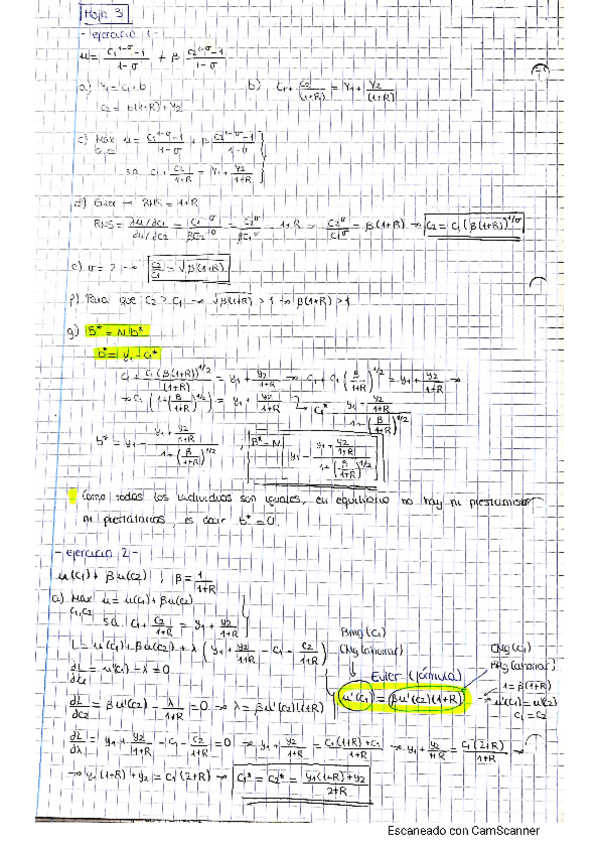 Hoja 3
- ejercicio 1 -
u = (c₁^(1-σ) - 1)/(1-σ) + β (c₂^(1-σ) - 1)/(1-σ)
a) Y₁ = c₁ + b b) c₁ + c₂/(1+R) = Y₁ + Y₂/(1+R)
c₂ = b(1+R) + Y₂
c) Max u = (c₁^(1-σ) - 1)/(1-σ) + β (c₂^(1-σ) - 1)/(1-σ)
c₁,c₂
s.a. c₁ + c₂/(1+R) = Y₁ + Y₂/(1+R)
d) Euler → RMS = 1+R
RMS = (du/dc₁)/(du/dc₂) = c₁^-σ/(βc₂^-σ) = c₂^σ/(βc₁^σ) = 1+R → c₂^σ/c₁^σ = β(1+R) → c₂ = c₁(β(1+R))^(1/σ)
e) σ = 2 → c₂/c₁ = √β(1+R)
f) Para que c₂ > c₁ → √β(1+R) > 1 → β(1+R) > 1
g) B* = N b*
b* = y₁ - c₁*
c₁ + c₁(β(1+R))^(1/2)/(1+R) = y₁ + y₂/(1+R) → c₁ + c₁(β/(1+R))^(1/2) = y₁ + y₂/(1+R) →
→ c₁(1 + (β/(1+R))^(1/2)) = y₁ + y₂/(1+R) → c₁* = (y₁ + y₂/(1+R))/(1 + (β/(1+R))^(1/2))
b* = y₁ - (y₁ + y₂/(1+R))/(1 + (β/(1+R))^(1/2)) ; B* = N [y₁ - (y₁ + y₂/(1+R))/(1 + (β/(1+R))^(1/2))]
Como todos los individuos son iguales, en equilibrio no hay ni prestamistas
ni prestatarios, es decir b* = 0.
- ejercicio 2 -
u(c₁) + βu(c₂) ; β = 1/(1+R)
a) Max u = u(c₁) + βu(c₂)
c₁,c₂
s.a. c₁ + c₂/(1+R) = y₁ + y₂/(1+R)
L = u(c₁) + βu(c₂) + λ (y₁ + y₂/(1+R) - c₁ - c₂/(1+R))
Bmg (c₁)
CMg (ahorrar)
CMg (c₁)
BMg (ahorrar)
Euler (fórmula)
∂L/∂c₁ = u'(c₁) - λ = 0
u'(c₁) = βu'(c₂)(1+R) → 1 = β(1+R)
u'(c₁) = u'(c₂)
c₁ = c₂
∂L/∂c₂ = βu'(c₂) - λ/(1+R) = 0 → λ = βu'(c₂)(1+R)
∂L/∂λ = y₁ + y₂/(1+R) - c₁ - c₂/(1+R) = 0 → y₁ + y₂/(1+R) = (c₁(1+R) + c₁)/(1+R) → y₁ + y₂/(1+R) = c₁(2+R)/(1+R) →
→ y₁(1+R) + y₂ = c₁(2+R) → c₁* = c₂* = (y₁(1+R) + y₂)/(2+R)
Escaneado con CamScanner